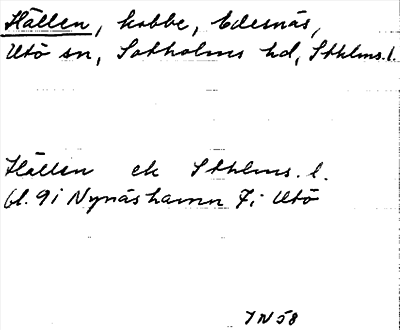 Hällen, kobbe, Edesnäs,
Utö sn, Sotholms hd, Sthlms.l.
Hällen ek Sthlms.l.
bl. 9i Nynäshamn 7i Utö
IN58